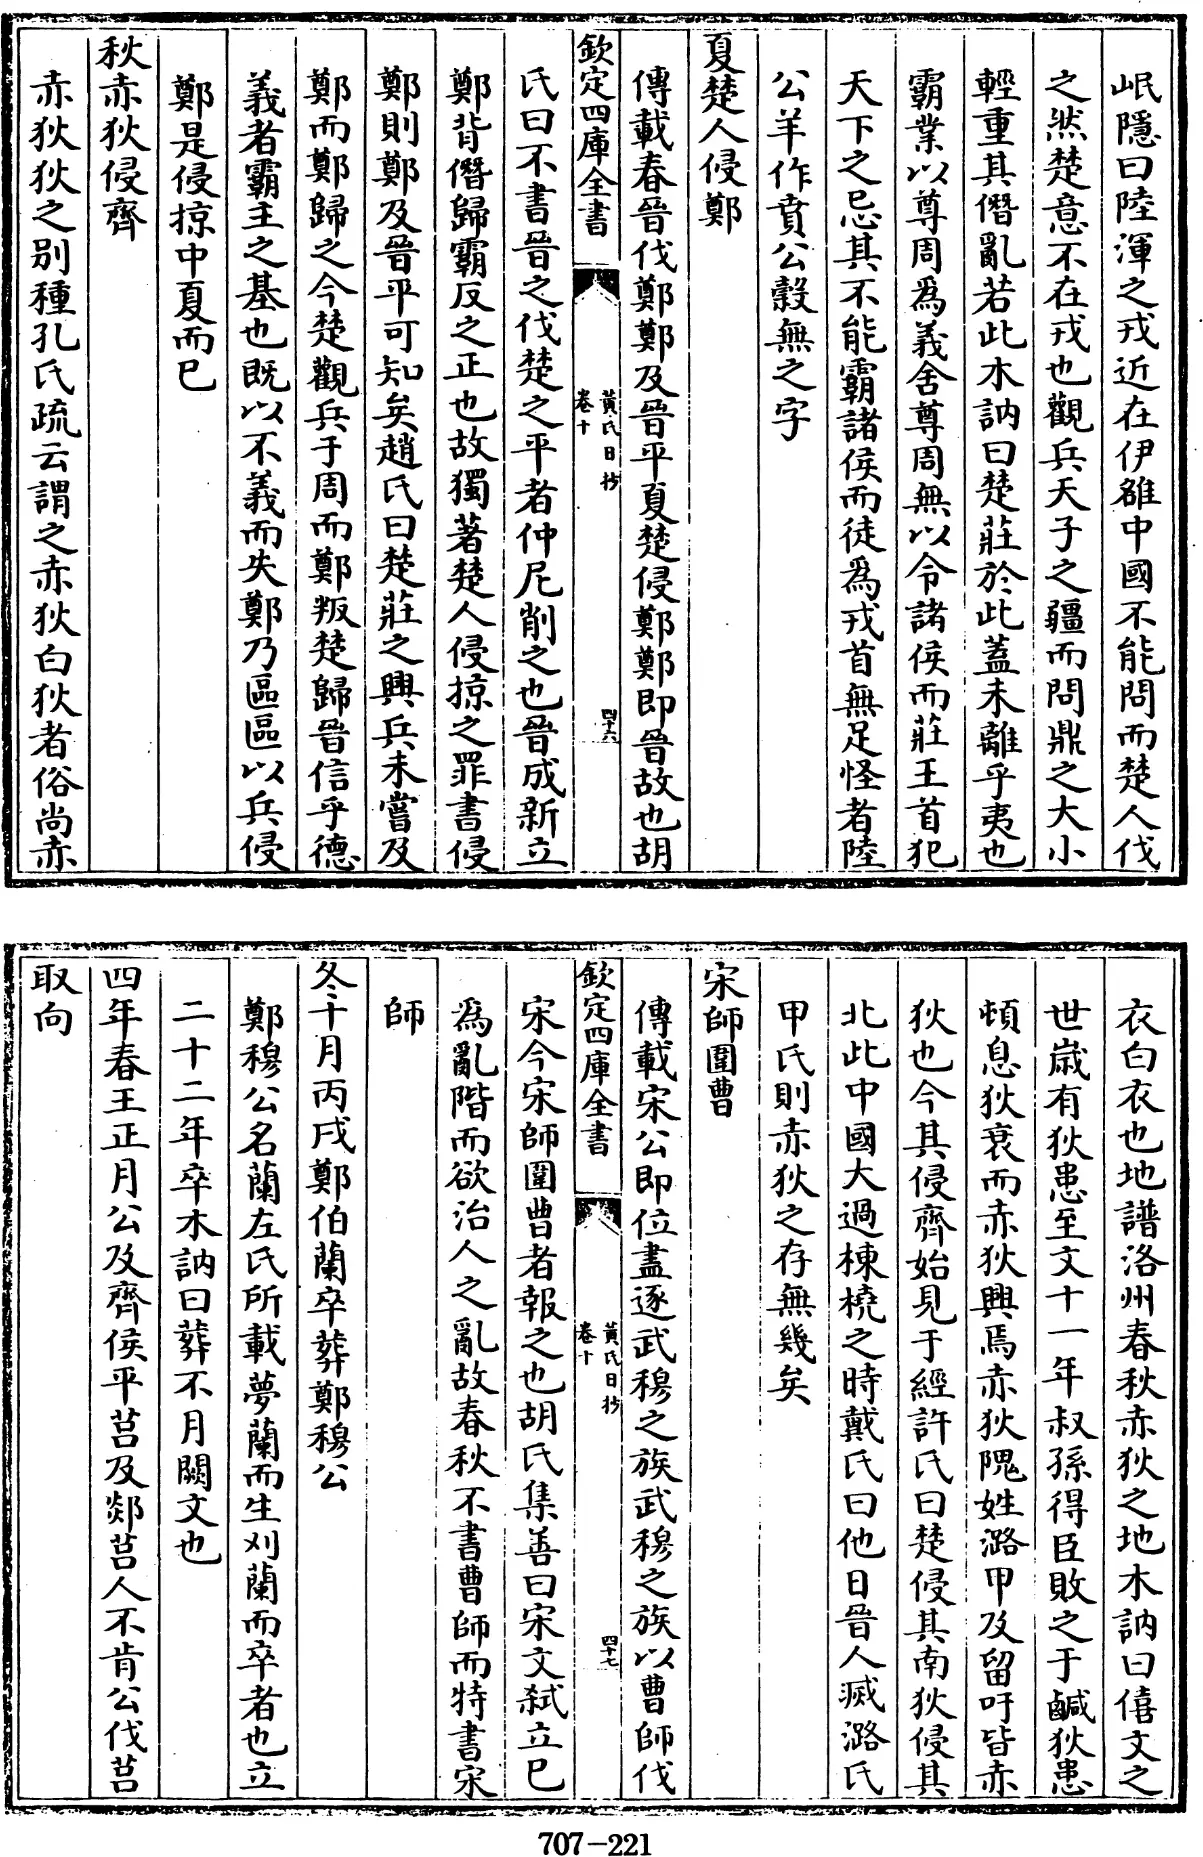 岷隱曰陸渾之戎近在伊雒中國不能問而楚人伐
之然楚意不在戎也觀兵天子之疆而問鼎之大小
輕重其僭亂若此木訥曰楚莊於此蓋未離乎夷也
霸業以尊周爲義舍尊周無以令諸侯而莊王首犯
天下之忌其不能霸諸侯而徒爲戎首無足怪者陸
公羊作賁公糓無之字
夏楚人侵鄭
傳載春晉伐鄭鄭及晉平夏楚侵鄭鄭即晉故也胡
欽定四庫全書
黃氏日抄
卷十
四十六
氏曰不書晉之伐楚之平者仲尼削之也晉成新立
鄭背僭歸霸反之正也故獨著楚人侵掠之罪書侵
鄭則鄭及晉平可知矣趙氏曰楚莊之興兵未嘗及
鄭而鄭歸之今楚觀兵于周而鄭叛楚歸晉信乎德
義者霸主之基也既以不義而失鄭乃區區以兵侵
鄭是侵掠中夏而已
秋赤狄侵齊
赤狄狄之別種孔氏疏云謂之赤狄白狄者俗尚赤
衣白衣也地譜洛州春秋赤狄之地木訥曰僖文之
世歲有狄患至文十一年叔孫得臣敗之于鹹狄患
頓息狄衰而赤狄興焉赤狄隗姓潞甲及留吁皆赤
狄也今其侵齊始見于經許氏曰楚侵其南狄侵其
北此中國大過棟橈之時戴氏曰他日晉人滅潞氏
甲氏則赤狄之存無幾矣
宋師圍曹
傳載宋公即位盡逐武穆之族武穆之族以曹師伐
欽定四庫全書
黃氏日抄
卷十
四十七
宋今宋師圍曹者報之也胡氏集善曰宋文弑立已
爲亂階而欲治人之亂故春秋不書曹師而特書宋
師
冬十月丙戌鄭伯蘭卒葬鄭穆公
鄭穆公名蘭左氏所載夢蘭而生刈蘭而卒者也立
二十二年卒木訥曰葬不月闕文也
四年春王正月公及齊侯平莒及郯莒人不肯公伐莒
取向
707-221